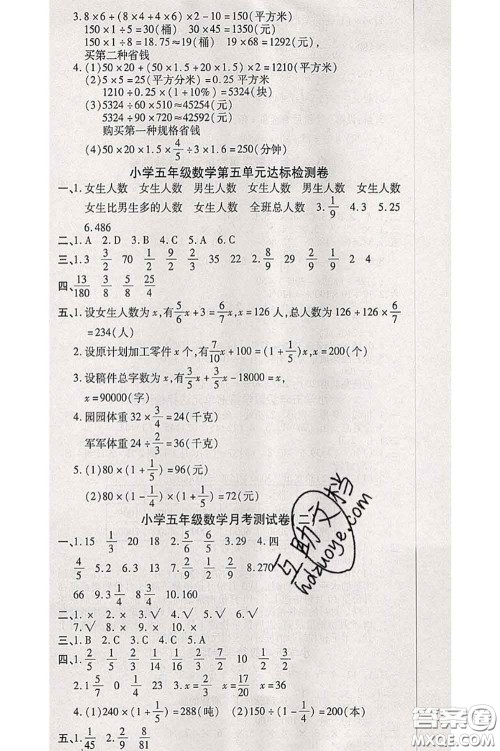 3. 8×6+(8×4+4×6)×2-10=150(平方米)
150×1÷5=30(桶) 30×45=1350(元)
150×1÷8=18.75≈19(桶) 19×68=1292(元),
买第二种省钱
4. (1)50×20+(50×1.5+20×1.5)×2=1210(平方米)
(2)5×5=25(平方分米)=0.25平方米
1210÷0.25×(1+10%)=5324(块)
(3)5324÷60×510≈45254(元)
5324÷90×720≈42592(元)
购买第一种规格省钱
(4)50×20×1.5×4/5÷3×1.6=250(分钟)
小学五年级数学第五单元达标检测卷
一、1. 女生人数 女生人数 男生人数 男生人数 女生人数
女生比男生多的人数 女生人数 全班总人数 3. 1/9 4. 3 5. 25
6. 486
二、1. A 2. D 3. B 4. C 5. A
三、1. 3 3/2 70 1/2 22 35 2. 8/9 29 2/9 1/2 2 4
四、13/180 3/8 5/8 25/4
五、1. 设女生人数为x,有5/6x+3=6/7x,x=126人,总人数=126+126×6/7
=234(人)
2. 设原计划加工零件x个,有7/10x+100=(1+1/5)x,x=200(个)
3. 设稿件总字数为x,有3/5x+3/5x-18000=x,
x=90000(字)
4. 园园体重32×3/4=24(千克)
军军体重24÷2/3=36(千克)
5. (1)80×(1+1/5)=96(元)
(2)80×(1-1/10)=72(元)
小学五年级数学月考测试卷(二)
一、1. 15 3/4 20 18 2. 2/5 6/5 3. 29 4. 四
4/5 5. 2 6. 2/5 1/5 7. 2/9 1/2 2/9 8. 270
66 9. 1/3 1/4 3/8 10. 160
二、1. × 2. × 3. × 4. √ 5. √ 6. ×
7. √ 8. × 9. √ 10. √
三、1. B 2. C 3. A 4. D 5. C
四、1. 2/5 1/5 1/2 1/14 1/16 3/10 1/3 2/15
2. 1 5/7 0 1/4 23 3. x=2/5 x=17/20 x=36
4. (1)240×(1+1/5)=288(吨) (2)150÷(1-1/4)=200(本)
五、1. 1/45 2. 2/9 8/9 3. 1/4
互助文档
hdzuoye.com
答案圈
MXQE.COM